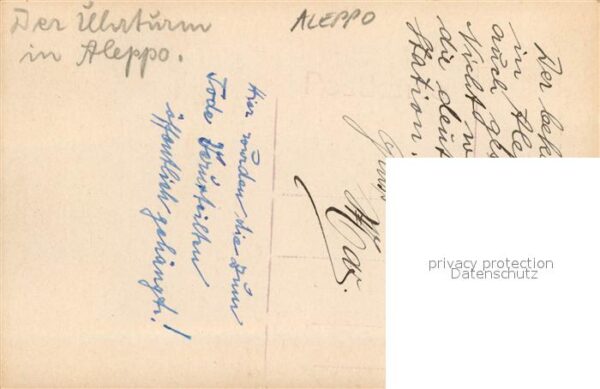 Der Uhrturm
in Aleppo.
ALEPPO
Hier wurden die zum
Tode Verurteilten
öffentlich gehängt!
Der
in Ale
auch
Nicht w
die deut
Station.
privacy protection
Datenschutz